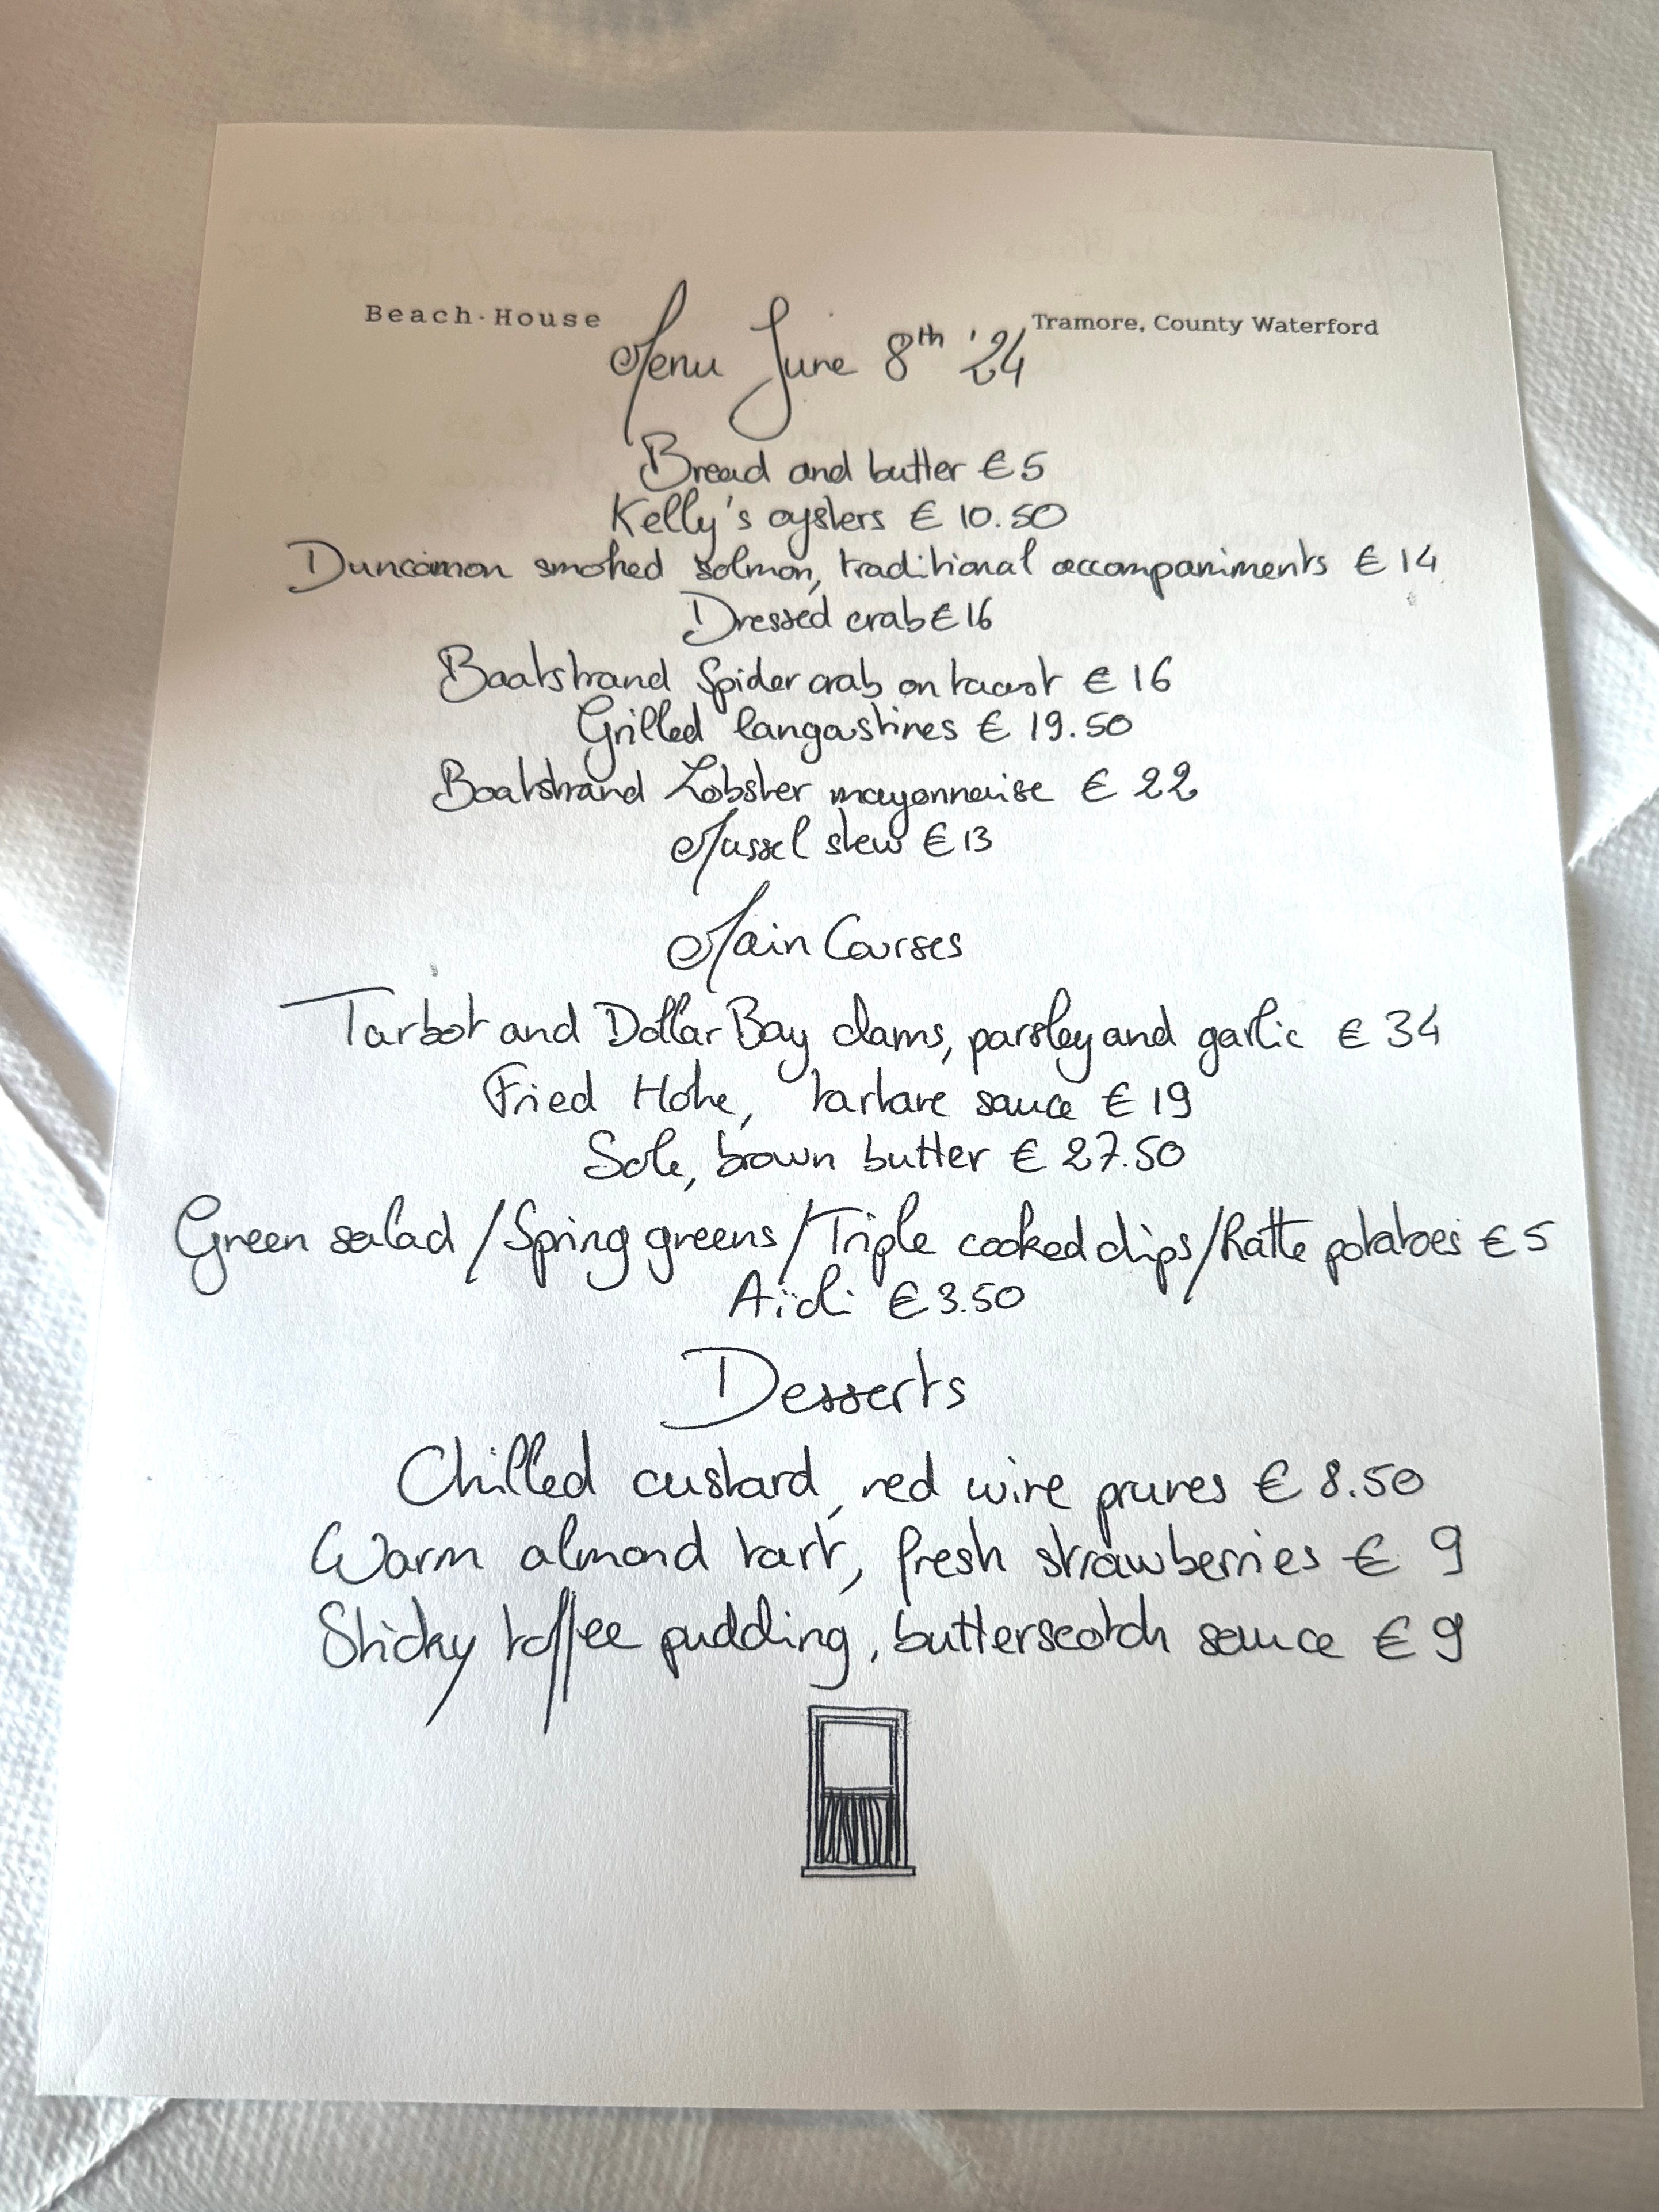 Beach·House
Tramore, County Waterford
Menu June 8th '24
Bread and butter €5
Kelly's oysters €10.50
Duncannon smoked salmon, traditional accompaniments €14
Dressed crab €16
Boatstrand Spider crab on toast €16
Grilled langoustines €19.50
Boatstrand Lobster mayonnaise €22
Mussel stew €13
Main Courses
Turbot and Dollar Bay clams, parsley and garlic €34
Fried Hake, tartare sauce €19
Sole, brown butter €27.50
Green salad / Spring greens / Triple cooked chips / Ratte potatoes €5
Aioli €3.50
Desserts
Chilled custard, red wine prunes €8.50
Warm almond tart, fresh strawberries €9
Sticky toffee pudding, butterscotch sauce €9